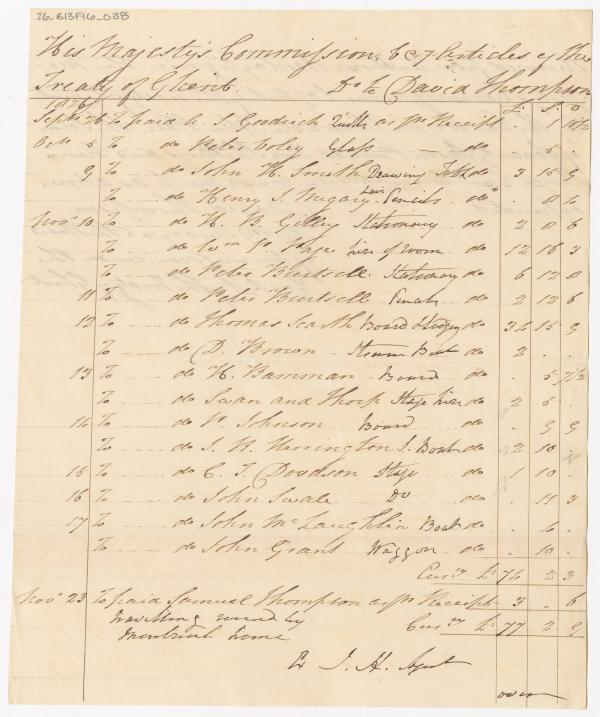 26-B13F16-038
His Majesty's Commission 6 & 7 Articles of the
Treaty of Ghent. Dr to David Thompson
£ S. D
Sept 26 To paid A. T. Goodrich as pr Receipt . 1 10½
Oct 5 To do Peter Coley Glass do . 5 .
9 To do John H. Smith Drawing Table do 3 15 9
To do Henry I. Megary Pencils do
Nov 10 To do H. B. Gilley Stationary do 2 0 6
To do Wm P. Page hire of room do 12 16 3
To do Peter Burtsell Stationary do 6 12 0
11 To do Peter Burtsell Pencils do 2 12 6
12 To do Thomas Scarth Board & Lodging do 15 9
To do D. Brown Steam Boat do 2 . .
13 To do H. Bamman Board do . 5 7½
To do Swan and Thorp Stage hire do 2 5 .
14 To do P. Johnson Board do . 9 9
To do J. R. Herrington S. Boat do 2 10 .
15 To do C. T. Davidson Stage do 1 10 .
16 To do John Swale Do do . 11 3
17 To do John McLaughlin Boat do . 6 .
To do John Grant Waggon do . 10 .
Curcy £ 74 2 3
Nov 23 To paid Samuel Thompson as pr Receipt 3 . 6
travelling round by
Montreal home Curcy £ 77 2 9
Ex J. H. Agent
over